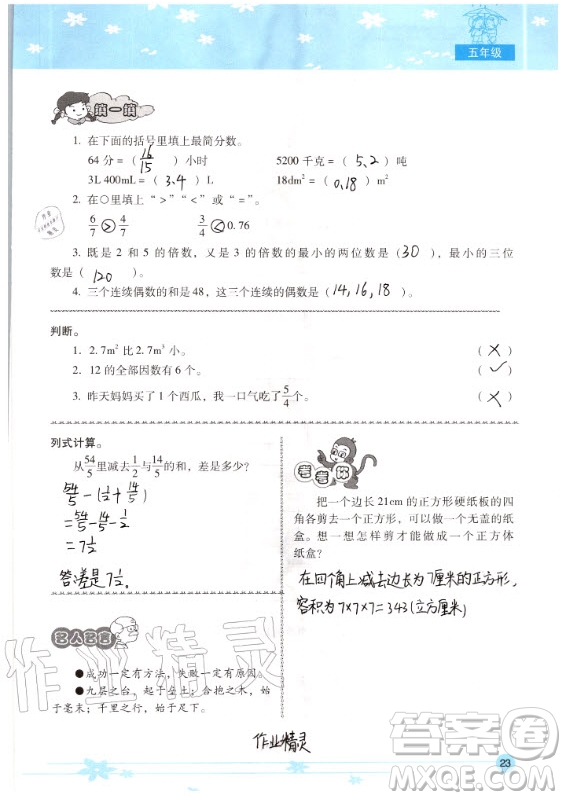 五年级
填一填
1. 在下面的括号里填上最简分数。
64 分 =（ 16/15 ）小时 5200 千克 =（ 5.2 ）吨
3L 400mL =（ 3.4 ）L 18dm² =（ 0.18 ）m²
2. 在○里填上“>”“<”或“=”。
6/7 > 4/7 3/4 < 0.76
3. 既是 2 和 5 的倍数，又是 3 的倍数的最小的两位数是（ 30 ），最小的三位
数是（ 120 ）
4. 三个连续偶数的和是 48，这三个连续的偶数是（ 14, 16, 18 ）
判断。
1. 2.7m² 比 2.7m³ 小。 （ × ）
2. 12 的全部因数有 6 个。 （ ✓ ）
3. 昨天妈妈买了 1 个西瓜，我一口气吃了 5/4 个。 （ × ）
列式计算。
从 54/5 里减去 1/2 与 14/5 的和，差是多少？
54/5 - (1/2 + 14/5)
= 54/5 - 14/5 - 1/2
= 7 1/2
答:差是7 1/2。
考考你
把一个边长 21cm 的正方形硬纸板的四
角各剪去一个正方形，可以做一个无盖的纸
盒。想一想怎样剪才能做成一个正方体
纸盒？
在四个角上减去边长为7厘米的正方形，
容积为7×7×7=343(立方厘米)
名人名言
●成功一定有方法，失败一定有原因。
●九层之台，起于垒土；合抱之木，始
于毫末；千里之行，始于足下。
作业精灵
作业精灵
23
答案圈
MXQE.COM